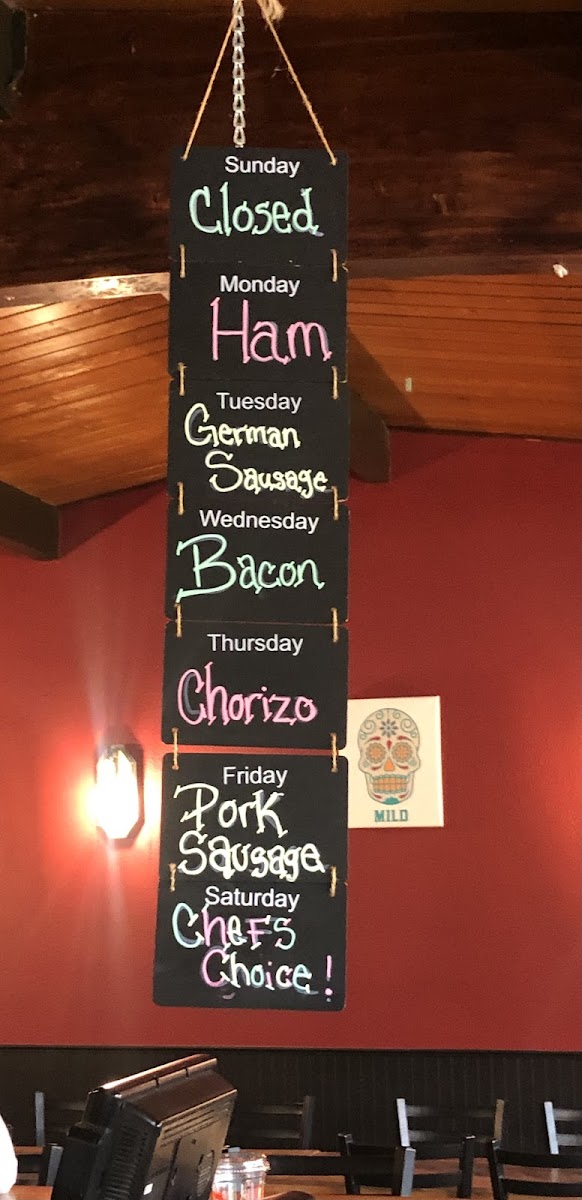 Sunday
Closed
Monday
Ham
Tuesday
German
Sausage
Wednesday
Bacon
Thursday
Chorizo
Friday
Pork
Sausage
Saturday
Chefs
Choice!
MILD